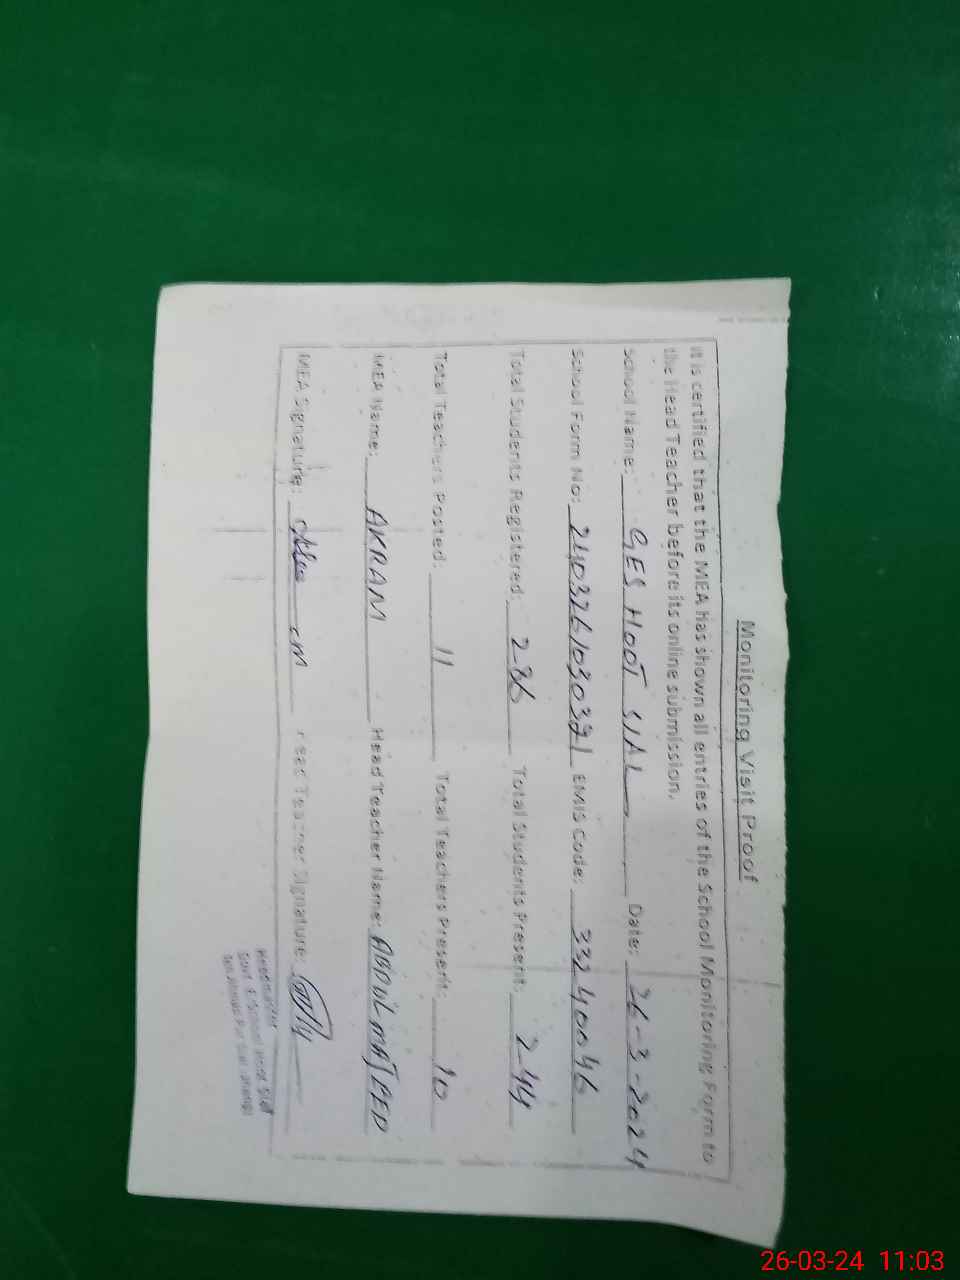 Monitoring Visit Proof
It is certified that the MEA has shown all entries of the School Monitoring Form to
the Head Teacher before its online submission.
School Name: GES HOOT SIAL Date: 26-3-2024
School Form No: 2403261030321 EMIS Code: 33240046
Total Students Registered: 286 Total Students Present: 244
Total Teachers Posted: 11 Total Teachers Present: 10
MEA Name: AKRAM Head Teacher Name: ABDUL MAJEED
MEA Signature: Head Teacher Signature:
Headmaster
Govt. E/School Hoot Sial
26-03-24 11:03